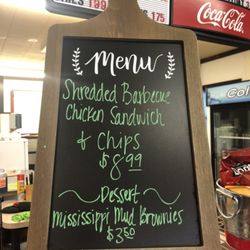 175
Coca-Cola
Menu
Shredded Barbecue
Chicken Sandwich
& Chips
$8.99
Dessert
Mississippi Mud Brownies
$3.50